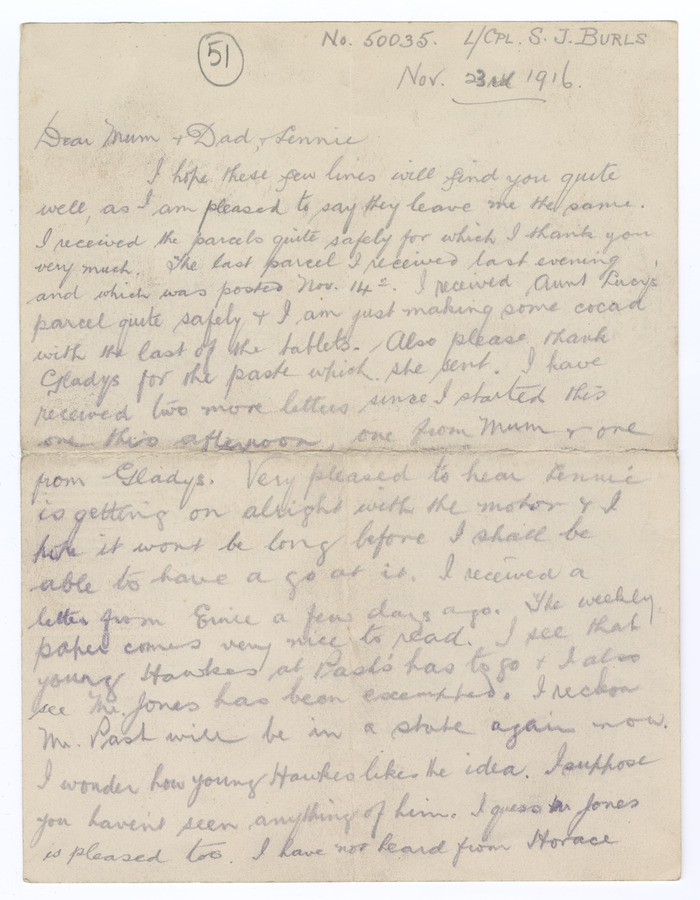 51
No. 50035. L/CPL. S. J. BURLS
Nov. 23rd 1916.
Dear Mum & Dad & Lennie
I hope these few lines will find you quite
well, as I am pleased to say they leave me the same.
I received the parcels quite safely for which I thank you
very much. The last parcel I received last evening
and which was posted Nov. 14th. I received Aunt Lucy's
parcel quite safely & I am just making some cocao
with the last of the tablets. Also please thank
Gladys for the paste which she sent. I have
received two more letters since I started this
one this afternoon, one from Mum & one
from Gladys. Very pleased to hear Lennie
is getting on alright with the motor & I
hope it wont be long before I shall be
able to have a go at it. I received a
letter from Ernie a few days ago. The weekly
paper comes very nice to read. I see that
young Hawkes at Pash's has to go & I also
see Mr. Jones has been exempted. I reckon
Mr. Pash will be in a state again now.
I wonder how young Hawkes likes the idea. I suppose
you havent seen anything of him. I guess Mr Jones
is pleased too. I have not heard from Horace